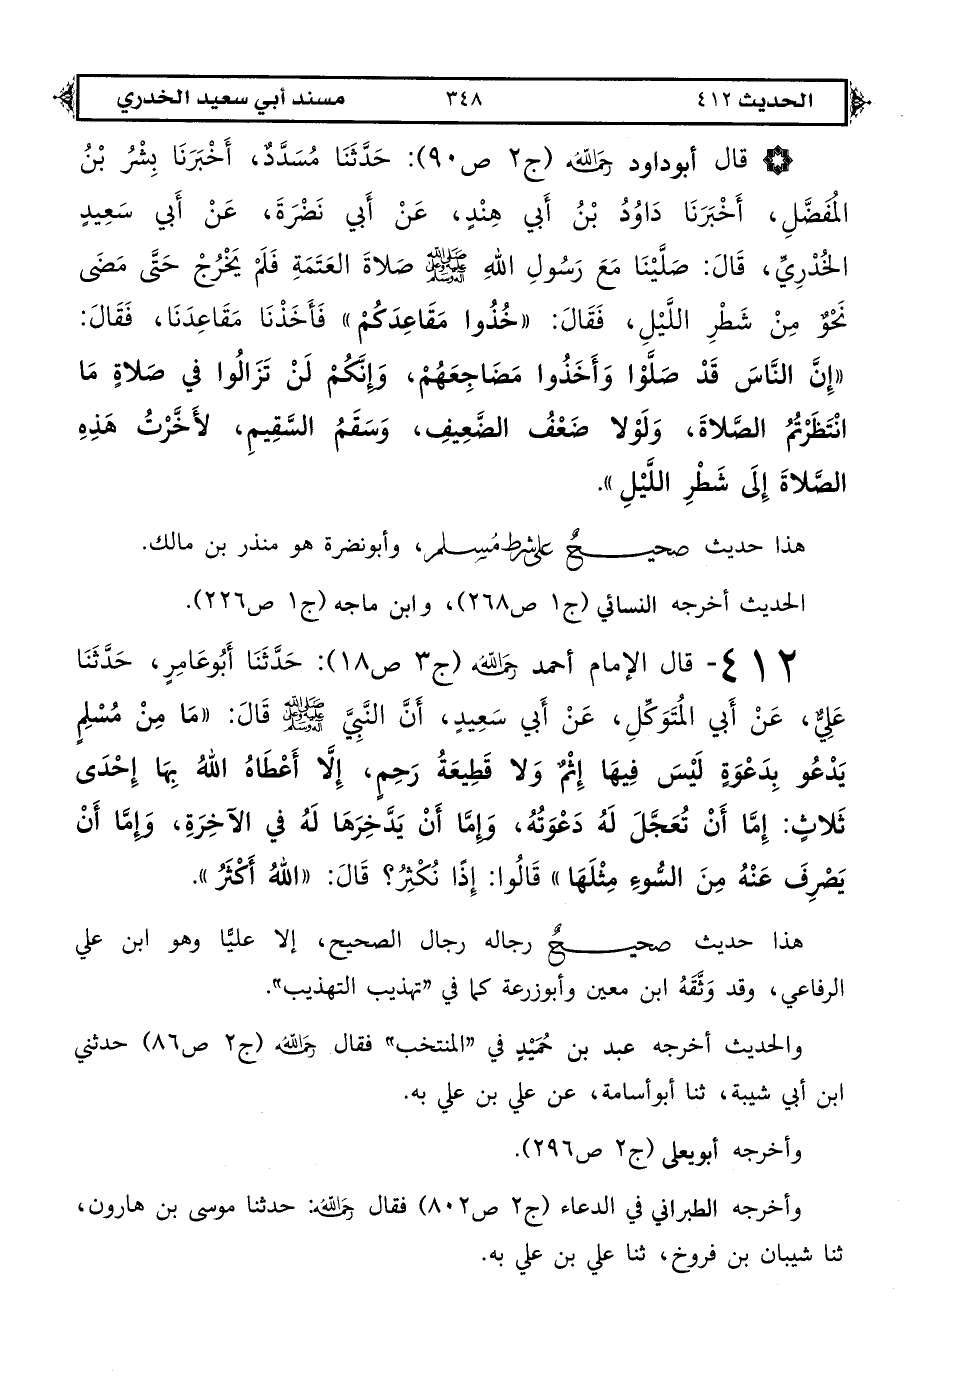 الحديث ٤١٢ ٣٤٨ مسند أبي سعيد الخدري
۞ قال أبوداود رَحِمَهُ اللهُ (ج٢ ص٩٠): حَدَّثَنَا مُسَدَّدٌ، أَخْبَرَنَا بِشْرُ بْنُ
المُفَضَّلِ، أَخْبَرَنَا دَاوُدُ بْنُ أَبِي هِنْدٍ، عَنْ أَبِي نَضْرَةَ، عَنْ أَبِي سَعِيدٍ
الخُدْرِيِّ، قَالَ: صَلَّيْنَا مَعَ رَسُولِ اللهِ ﷺ صَلَاةَ العَتَمَةِ فَلَمْ يَخْرُجْ حَتَّى مَضَى
نَحْوٌ مِنْ شَطْرِ اللَّيْلِ، فَقَالَ: «خُذُوا مَقَاعِدَكُمْ» فَأَخَذْنَا مَقَاعِدَنَا، فَقَالَ:
«إِنَّ النَّاسَ قَدْ صَلَّوْا وَأَخَذُوا مَضَاجِعَهُمْ، وَإِنَّكُمْ لَنْ تَزَالُوا فِي صَلَاةٍ مَا
انْتَظَرْتُمُ الصَّلَاةَ، وَلَوْلَا ضَعْفُ الضَّعِيفِ، وَسَقَمُ السَّقِيمِ، لَأَخَّرْتُ هَذِهِ
الصَّلَاةَ إِلَى شَطْرِ اللَّيْلِ».
هذا حديث صحيحٌ على شرط مُسلِم، وأبونضرة هو منذر بن مالك.
الحديث أخرجه النسائي (ج١ ص٢٦٨)، وابن ماجه (ج١ ص٢٢٦).
٤١٢- قال الإمام أحمد رَحِمَهُ اللهُ (ج٣ ص١٨): حَدَّثَنَا أَبُوعَامِرٍ، حَدَّثَنَا
عَلِيٌّ، عَنْ أَبِي المُتَوَكِّلِ، عَنْ أَبِي سَعِيدٍ، أَنَّ النَّبِيَّ ﷺ قَالَ: «مَا مِنْ مُسْلِمٍ
يَدْعُو بِدَعْوَةٍ لَيْسَ فِيهَا إِثْمٌ وَلَا قَطِيعَةُ رَحِمٍ، إِلَّا أَعْطَاهُ اللهُ بِهَا إِحْدَى
ثَلَاثٍ: إِمَّا أَنْ تُعَجَّلَ لَهُ دَعْوَتُهُ، وَإِمَّا أَنْ يَدَّخِرَهَا لَهُ فِي الآخِرَةِ، وَإِمَّا أَنْ
يَصْرِفَ عَنْهُ مِنَ السُّوءِ مِثْلَهَا» قَالُوا: إِذًا نُكْثِرُ؟ قَالَ: «اللهُ أَكْثَرُ».
هذا حديث صحيحٌ رجاله رجال الصحيح، إلا عليًّا وهو ابن علي
الرفاعي، وقد وَثَّقَهُ ابن معين وأبوزرعة كما في "تهذيب التهذيب".
والحديث أخرجه عبد بن حُمَيْدٍ في "المنتخب" فقال رَحِمَهُ اللهُ (ج٢ ص٨٦) حدثني
ابن أبي شيبة، ثنا أبوأسامة، عن علي بن علي به.
وأخرجه أبويعلى (ج٢ ص٢٩٦).
وأخرجه الطبراني في الدعاء (ج٢ ص٨٠٢) فقال رَحِمَهُ اللهُ: حدثنا موسى بن هارون،
ثنا شيبان بن فروخ، ثنا علي بن علي به.